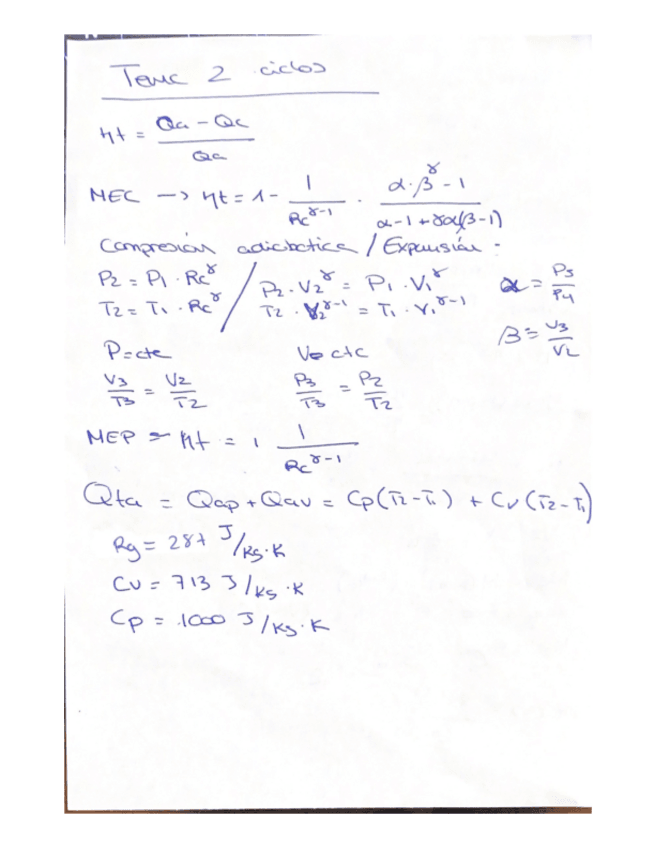 Tema 2 ciclos
ηt = (Qa - Qc) / Qa
MEC → ηt = 1 - 1 / Rc^γ-1 · (α·β^γ - 1) / (α-1+γα(β-1))
Compresión adiabatica / Expansión:
P2 = P1 · Rc^γ / P2 · V2^γ = P1 · V1^γ
T2 = T1 · Rc^γ / T2 · V2^γ-1 = T1 · V1^γ-1
α = P3 / P4
β = V3 / V2
P=cte V=cte
V3/T3 = V2/T2 P3/T3 = P2/T2
MEP ηt = 1 1 / Rc^γ-1
Qta = Qap + Qav = Cp(T2-T1) + Cv(T2-T1)
Rg = 287 J/kg·K
Cv = 713 J/kg·K
Cp = 1000 J/kg·K